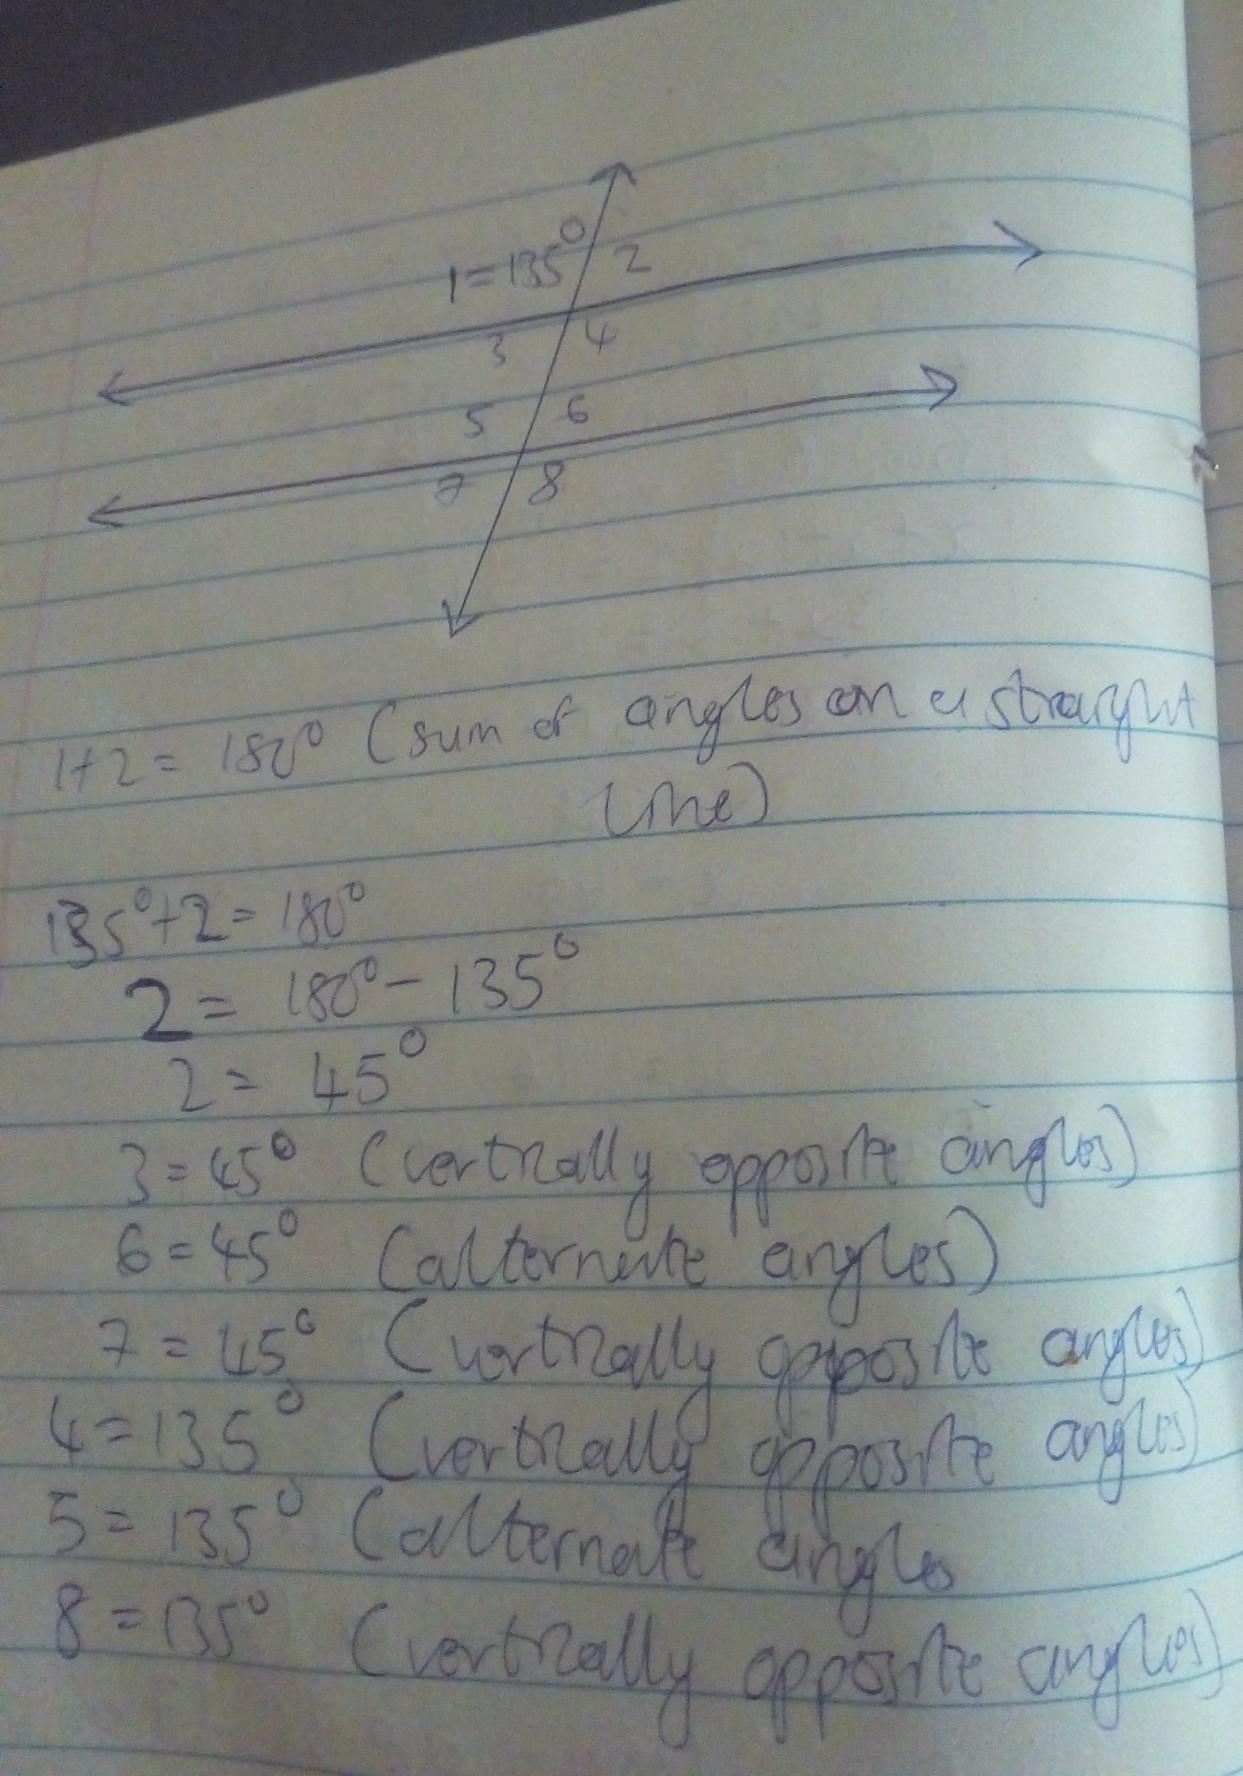 1=135° 2
3 4
5 6
7 8
1+2= 180° (sum of angles on a straight
line)
135°+2= 180°
2= 180°- 135°
2= 45°
3=45° (vertically opposite angles)
6=45° (alternate angles)
7=45° (vertically opposite angles)
4=135° (vertically opposite angles)
5=135° (alternate angles
8=135° (vertically opposite angles)